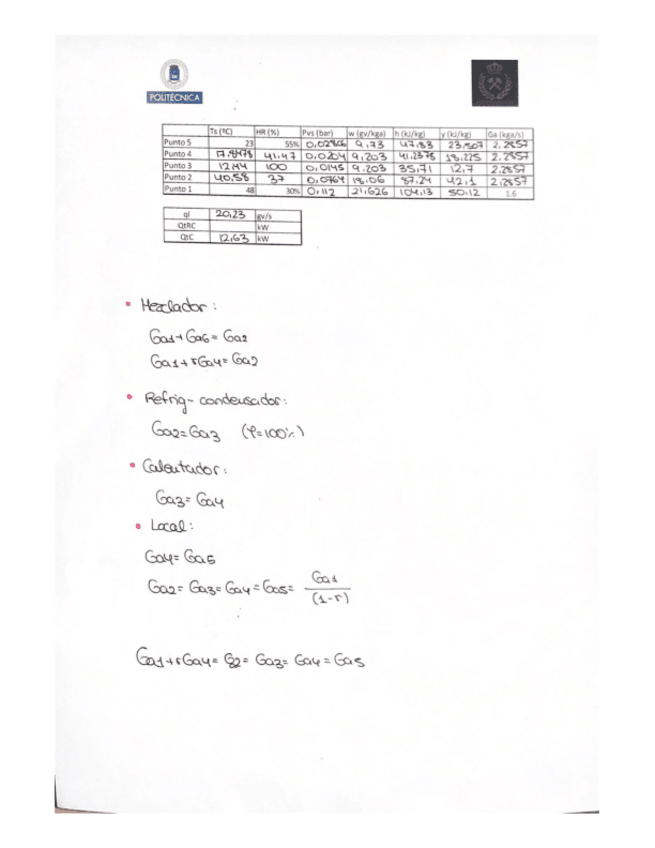 POLITÉCNICA
Ts (ºC) HR (%) Pvs (bar) w (gv/kga) h (kJ/kg) y (kJ/kg) Ga (kga/s)
Punto 5 23 55% 0,02806 9,73 47.83 23,507 2,2857
Punto 4 17.8478 41.47 0,0204 9,203 41,2375 18,225 2.2857
Punto 3 12,44 100 0,0145 9.203 35,71 12,7 2.2857
Punto 2 40,58 37 0,0764 18,06 87,24 42,1 2,2857
Punto 1 48 30% 0,112 21,626 104,13 50,12 1.6
ql 20,23 gv/s
QtRC kW
QtC 12,63 kW
• Mezclador:
Ga1+Ga6=Ga2
Ga1+rGa4=Ga2
• Refrig-condensador:
Ga2=Ga3 (φ=100%)
• Calentador:
Ga3=Ga4
• Local:
Ga4=Ga5
Ga2=Ga3=Ga4=Ga5= Ga1
(1-r)
Ga1+rGa4= G2= Ga3= Ga4=Ga5